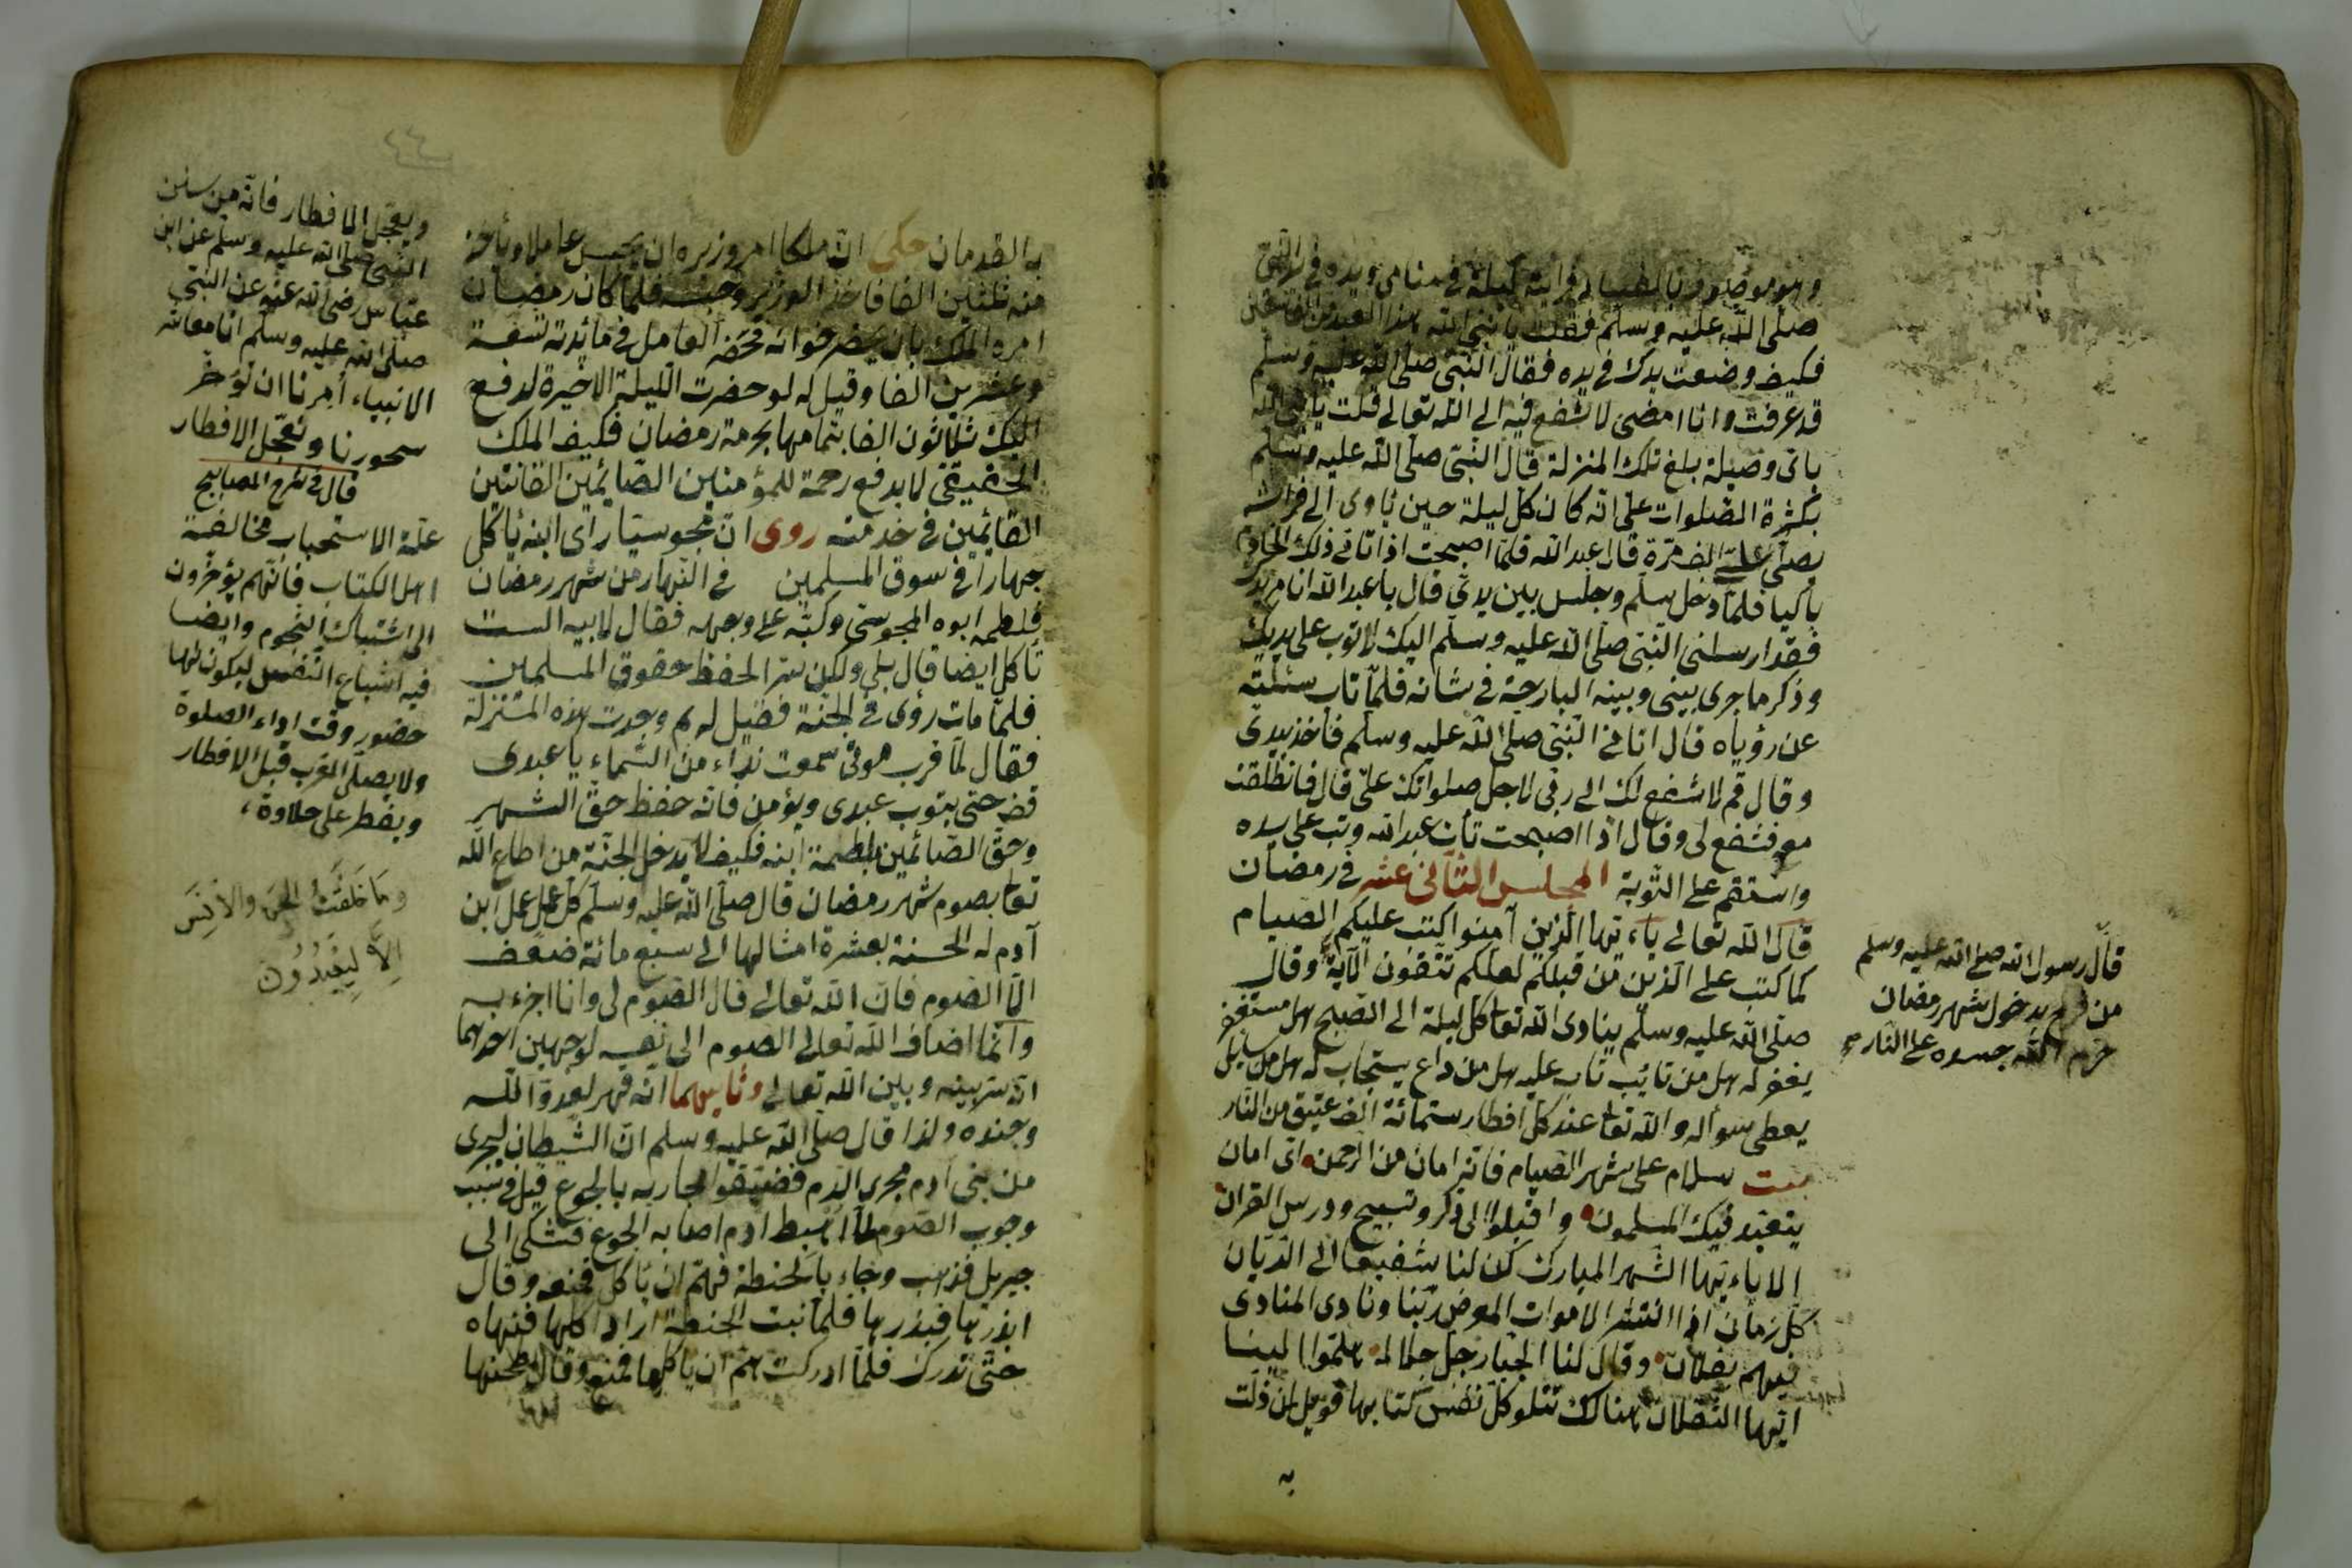 وهو موصوف بالفساد فرأيته ليلة في منامي ويده في يد النبي
صلى الله عليه وسلم فقلت يا نبي الله هذا العبد من
فكيف وضعت يدك في يده فقال النبي صلى الله عليه وسلم
قد عرفت وانا امضى لاشفع فيه الى الله تعالى فقلت يا نبي الله
باى وصيلة بلغ تلك المنزلة قال النبي صلى الله عليه وسلم
بكثرة الصلوات على انه كان كل ليلة حين يأوى الى فراشه
يصلى على الف مرة قال عبد الله فلما اصبحت اذا تا في ذلك
باكيا فلما دخل يسلم وجلس بين يدى قال يا عبد الله انا مريد
فقد ارسلنى النبي صلى الله عليه وسلم اليك لاتوب على يديك
وذكر ما جرى بينى وبينه البارحة في شانه فلما تاب سئلته
عن رؤياه قال اتانى النبي صلى الله عليه وسلم فاخذ بيدى
وقال قم لاشفع لك الى ربى لاجل صلواتك على قال فانطلقت
معه فشفع لى وقال اذا اصبحت تأت عبد الله وتب على يده
واستقم على التوبة المجلس الثانى عشر فى رمضان
قال الله تعالى ياءيها الذين آمنوا كتب عليكم الصيام
كما كتب على الذين من قبلكم لعلكم تتقون الآية وقال
صلى الله عليه وسلم ينادى الله تعا كل ليلة الى الصبح هل مستغفر
يغفر له هل من تائب تاب عليه هل من داع يستجاب له هل من سائل
يعطى سواله والله تعا عند كل افطار ستمائة الف عتيق من النار
بيت سلام على شهر الصيام فانه امان من الرحمن اى امان
يتعبد فيك المسلمون واقبلوا الى ذكر وتسبيح ودرس القران
الاياءيها الشهر المبارك كن لنا شفيعا الى الديان
كل زمان اذا انتشر الاموات المعرض ربنا ونادى المنادى
فيهم بفلان وقال لنا الجبار جل جلاله هلموا الينا
ايها الثقلان هناك تتلو كل نفس كتابها فويل ان ذلت
به
قال رسول الله صلى الله عليه وسلم
من فرح بدخول شهر رمضان
حرم الله جسده على النار
٤٤
به القدمان حكى ان ملكا امر وزيره ان يحبس عاملا ويأخذ
منه ثلثين الفا فاخذ الوزير وحبسه فلما كان رمضان
امره الملك بان يحضر خوانه فحضر العامل في مائدته تسعة
وعشرين الفا وقيل له لو حضرت الليلة الاخيرة لدفع
اليك ثلاثون الفا بتمامها بحرمة رمضان فكيف الملك
الحقيقى لا يدفع رحمة للمؤمنين الصائمين القانتين
القائمين في خدمته روى ان مجوسيا رأى ابنه يأكل
جهارا في سوق المسلمين في النهار من شهر رمضان
فلطمه ابوه المجوسى وكبه على وجهه فقال لابيه الست
تأكل ايضا قال بلى ولكن سرا لحفظ حقوق المسلمين
فلما مات رؤى في الجنة فقيل له بم وجدت هذه المنزلة
فقال لما قرب موتى سمعت نداء من السماء يا عبدى
قف حتى يتوب عبدى ويؤمن فانه حفظ حق الشهر
وحق الصائمين بلطمة ابنه فكيف لا يدخل الجنة من اطاع الله
تعا بصوم شهر رمضان قال صلى الله عليه وسلم كل عمل عمل ابن
آدم له الحسنة بعشرة امثالها الى سبع مائة ضعف
الا الصوم فان الله تعالى قال الصوم لى وانا اجزء به
وانما اضاف الله تعالى الصوم الى نفسه لوجهين احدهما
انه سر بينه وبين الله تعالى وثانيهما انه قهر لعدو الله
وجنده ولذا قال صلى الله عليه وسلم ان الشيطان ليجرى
من بنى ادم مجرى الدم فضيقوا مجاريه بالجوع قيل في سبب
وجوب الصوم لما اهبط ادم اصابه الجوع فشكى الى
جبريل فذهب وجاء بالحنطة فهم ان يأكل فمنعه وقال
ابذرها فبذرها فلما نبت الحنطة اراد اكلها فنهاه
حتى تدرك فلما ادركت هم ان يأكلها فمنعه وقال اطحنها
ويعجل الافطار فانه من سنن
النبي صلى الله عليه وسلم عن ابن
عباس رضى الله عنه عن النبي
صلى الله عليه وسلم انا معاشر
الانبياء أمرنا ان نؤخر
سحورنا ونعجل الافطار
قال فى شرح المصابيح
علة الاستحباب مخالفة
اهل الكتاب فانهم يؤخرون
الى اشتباك النجوم وايضا
فيه اشباع النفس ليكون لها
حضور وقت اداء الصلوة
ولا يصلى المغرب قبل الافطار
ويفطر على حلاوة
وَمَا خَلَقْتُ الجِنَّ والاِنْسَ
اِلاَّ لِيَعْبُدُونَ